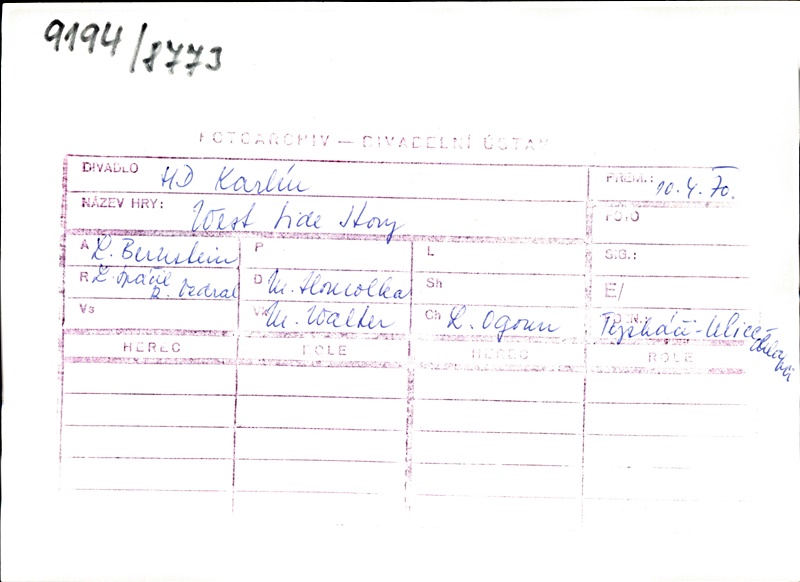 9194/8773
FOTOARCHIV — DIVADELNÍ ÚSTAV
DIVADLO HD Karlín PREM.: 10.4.70.
NÁZEV HRY: West Side Story FOTO
A L. Bernstein P L SIG.:
R L. Spáčil D M. Hlomolka Sh E/
R. Vedral
Vs M. Walter Ch L. Ogoun Tryskáči-Ulice
HEREC ROLE HEREC ROLE